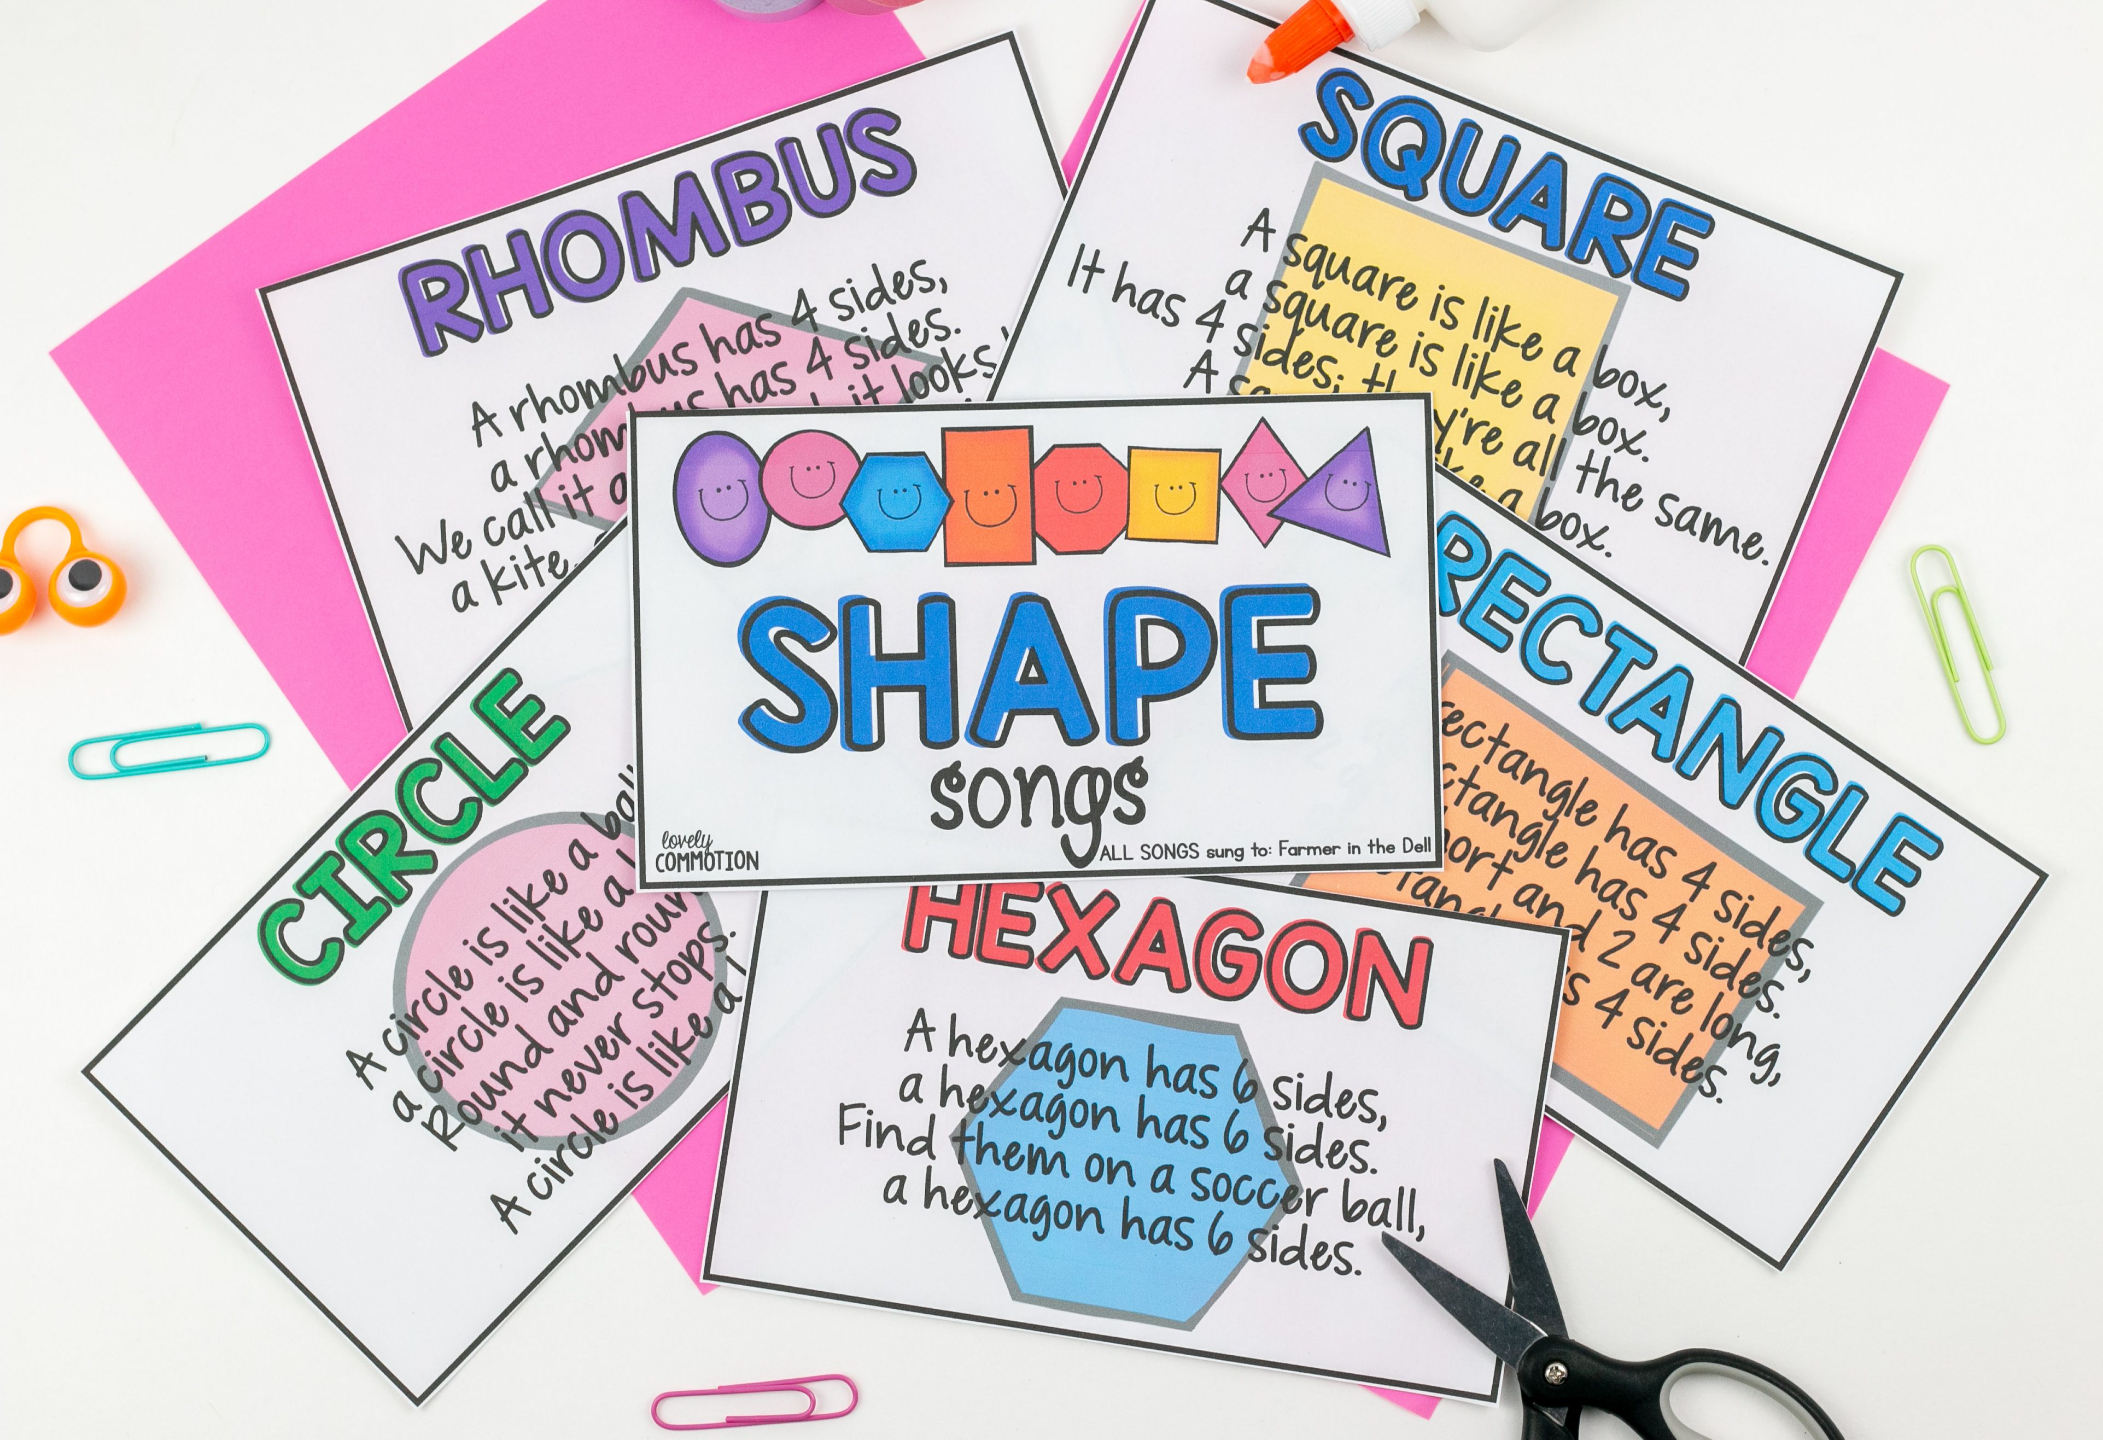 RHOMBUS
A rhombus has 4 sides,
a rhom us has 4 sides.
We call it a it looks
a kite.
SQUARE
A square is like a box,
a square is like a box.
It has 4 sides; they're all the same.
A a box.
RECTANGLE
rectangle has 4 sides,
ctangle has 4 sides.
ort and 2 are long,
s 4 sides.
CIRCLE
A circle is like a ball
a circle is like a
Round and roun
it never stops.
A circle is like a
SHAPE
songs
lovely
COMMOTION
ALL SONGS sung to: Farmer in the Dell
HEXAGON
A hexagon has 6 sides,
a hexagon has 6 sides.
Find them on a soccer ball,
a hexagon has 6 sides.